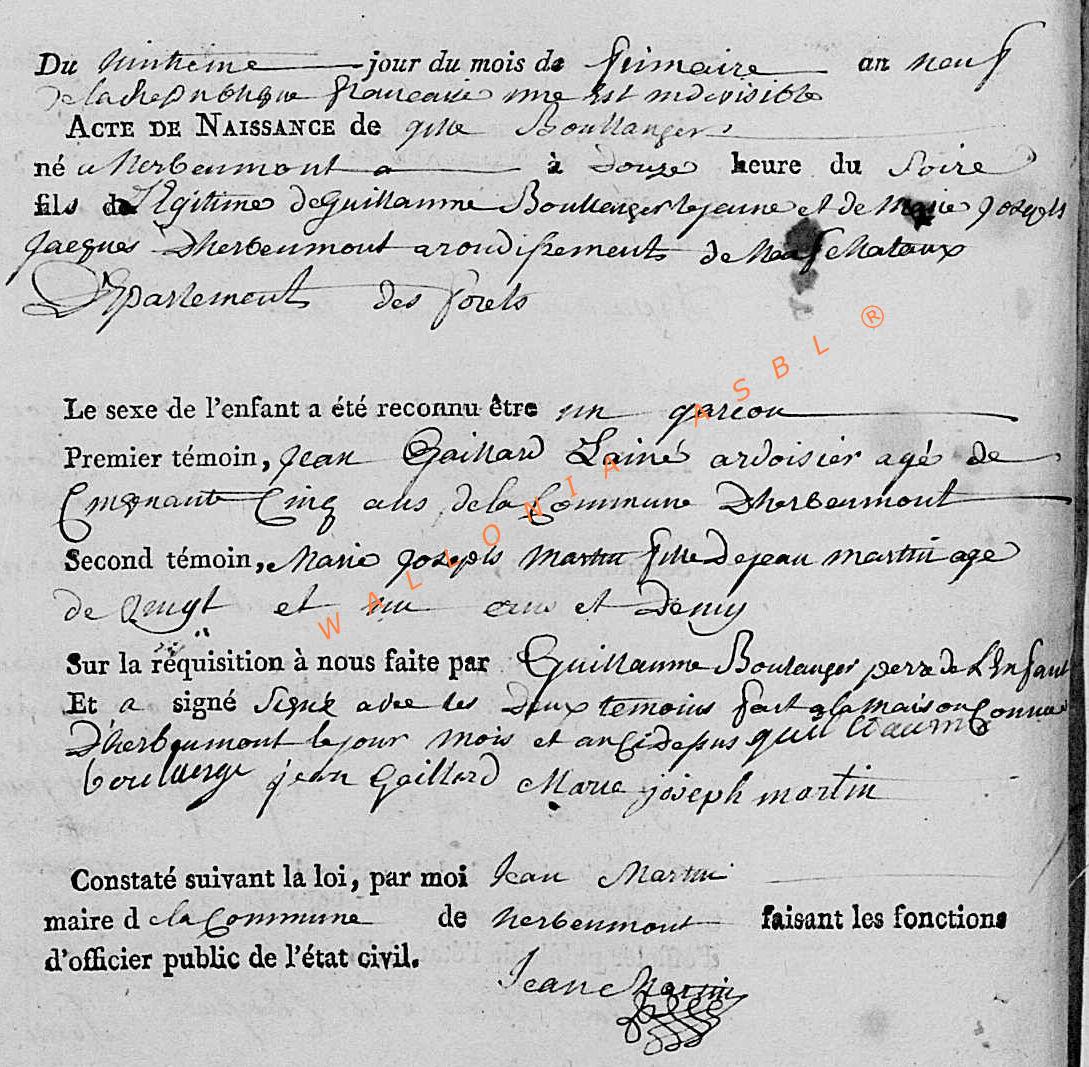 Du vintieme jour du mois de frimaire an neuf
de la Republique francaise une Est indivisible
ACTE DE NAISSANCE de gille Boullanger
né a herbeumont à douze heure du Soire
fils de Legitime de Guillaume Boullanger le jeune et de Marie Josephs
Jacques Dherbeumont arondissement de Neufchataux
Departement des forets
Le sexe de l'enfant a été reconnu être un garcon
Premier témoin, Jean Gaillard Lainé ardoisier agé de
Cinqnante Cinq ans de la Commune Dherbeumont
Second témoin, Marie Josephs Martin fille de jean martin age
de vingt et un ans et Demy
Sur la réquisition à nous faite par Guillaume Boulanger pere de L'Enfant
Et a signé Signé avec les Deux temoins fait a la maison Commune
Dherbeumont le jour mois et an
jean Gaillard Marie joseph martin
Constaté suivant la loi, par moi Jean Martin
maire d e la Commune de herbeumont faisant les fonctions
d'officier public de l'état civil.
Jean Martin
WALLONIA ASBL ®